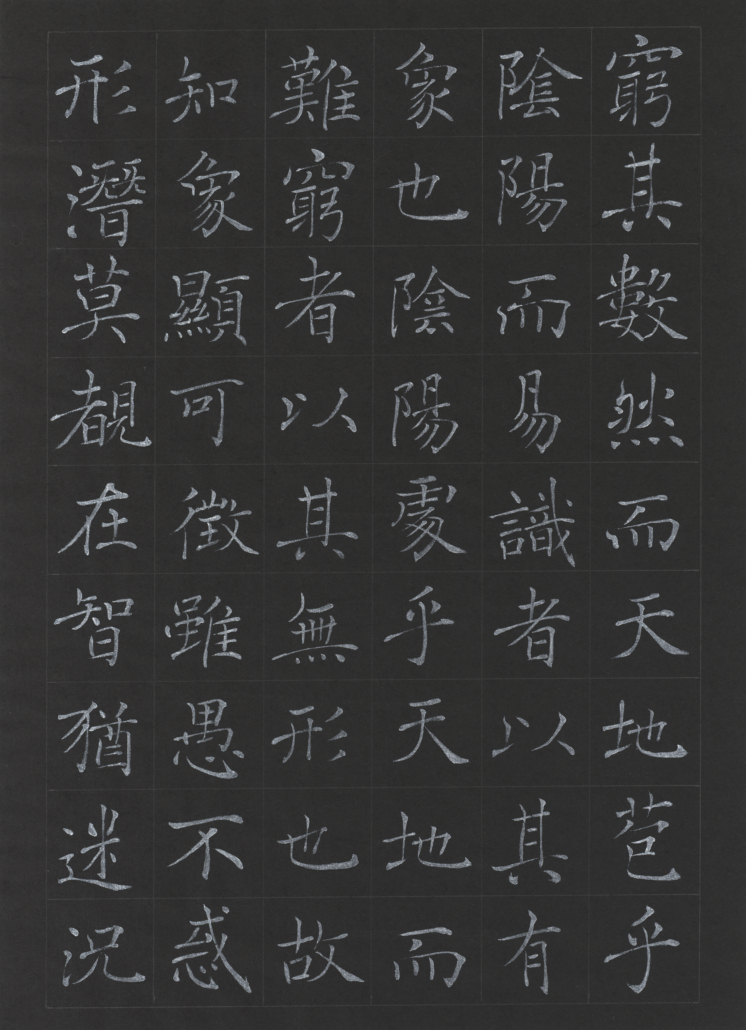 窮其數然而天地苞乎
陰陽而易識者以其有
象也陰陽處乎天地而
難窮者以其無形也故
知象顯可徵雖愚不惑
形潛莫覩在智猶迷況